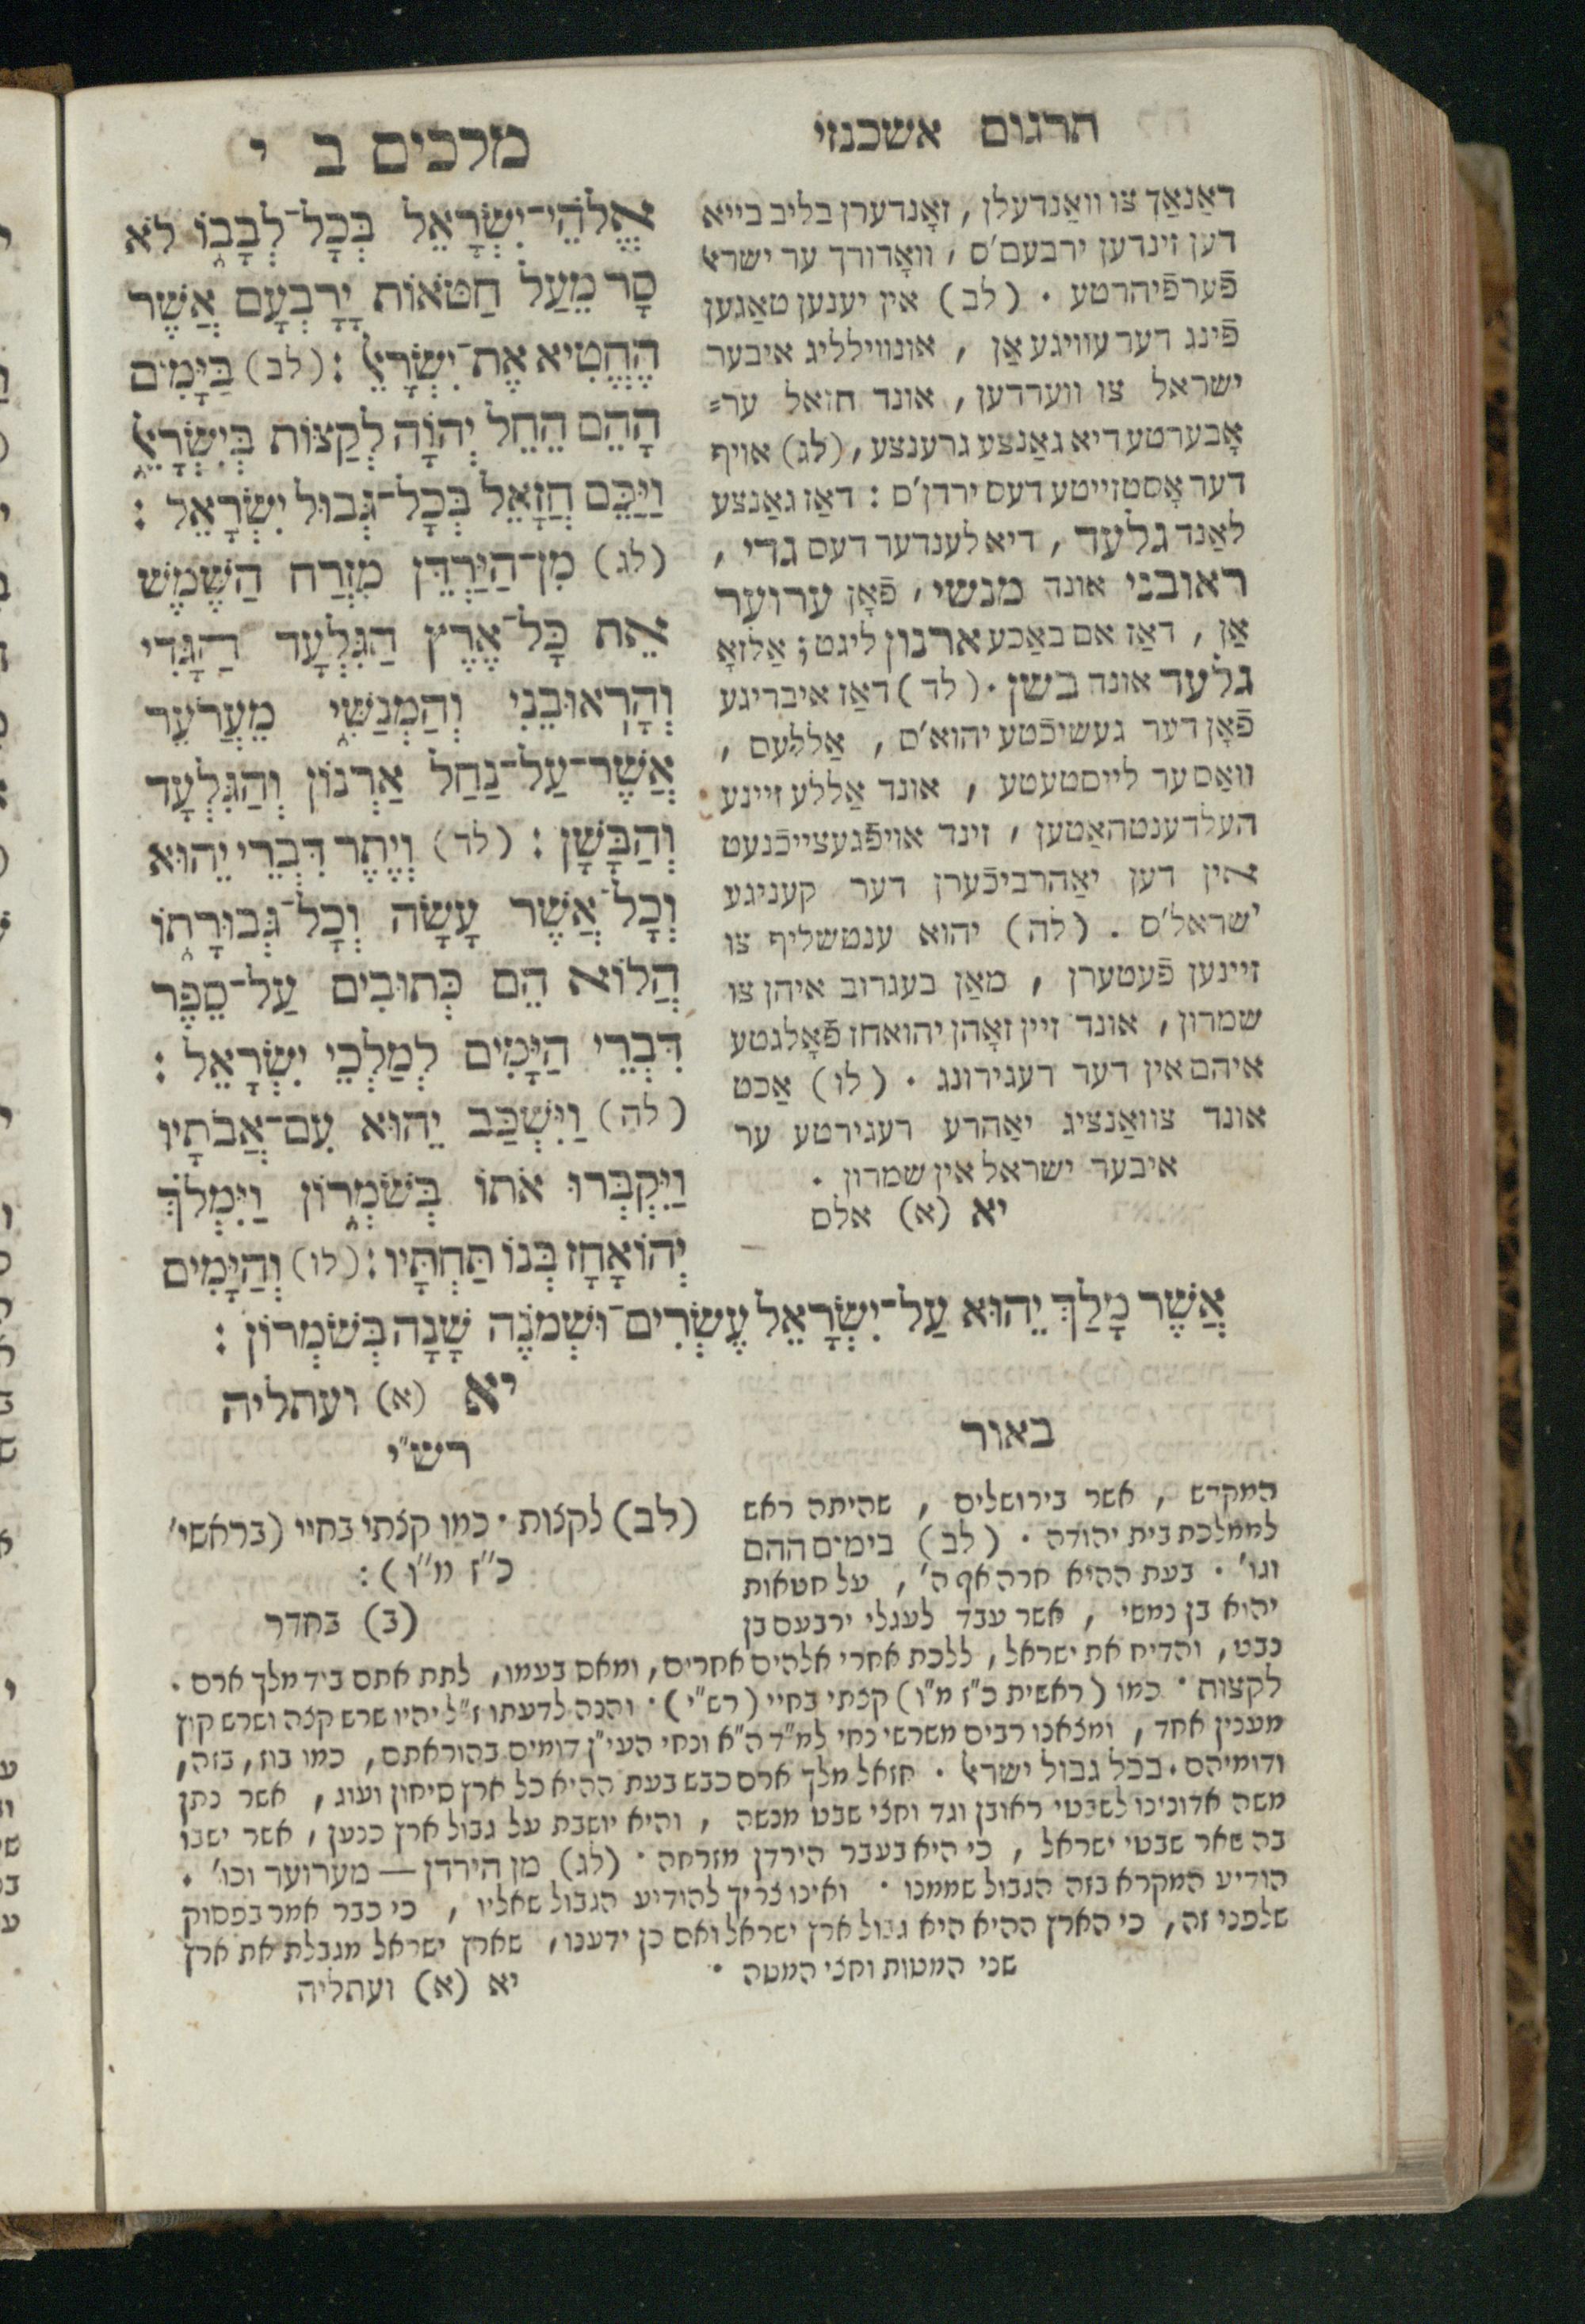 תרגום אשכנזי
דאַנאַך צו וואַנדעלן, זאָנדערן בליב בייא
דען זינדען ירבעם'ס, וואָדורך ער ישראל
פֿערפֿיהרטע. (לב) אין יענען טאַגען
פֿינג דער עוויגע אַן, אונוויללוג איבער
ישראל צו ווערדען, אונד חזאל ער=
אָבערטע דיא גאַנצע גרענצע, (לג) אויף
דער אָסטזייטע דעס ירדן'ס: דאַז גאַנצע
לאַנד גלעד, דיא לענדער דעס גדי,
ראובני אונד מנשי, פֿאָן ערוער
אַן, דאַז אם באַכע ארנון ליגט; אַלזאָ
גלעד אונד בשן. (לד) דאַז איבריגע
פֿאָן דער געשיכֿטע יהוא'ס, אַללעס,
וואַס ער לייסטעטע, אונד אַללע זיינע
העלדענטהאַטען, זינד אויפֿגעצייכֿנעט
אין דען יאַהרביכֿערן דער קעניגע
ישראל'ס. (לה) יהוא ענטשליף צו
זיינען פֿעטערן, מאַן בעגרוב איהן צו
שמרון, אונד זיין זאָהן יהואחז פֿאָלגטע
איהם אין דער רעגירונג. (לו) אַכט
אונד צוואַנציג יאַהרע רעגירטע ער
איבער ישראל אין שמרון.
יא (א) אלס
מלכים ב י
אֱלֹהֵי־יִשְׂרָאֵל בְּכָל־לְבָבוֹ לֹא
סָר מֵעַל חַטֹּאות יָרָבְעָם אֲשֶׁר
הֶחֱטִיא אֶת־יִשְׂרָאֵל: (לב) בַּיָּמִים
הָהֵם הֵחֵל יְהוָֹה לְקַצּוֹת בְּיִשְׂרָאֵל
וַיַּכֵּם חֲזָאֵל בְּכָל־גְּבוּל יִשְׂרָאֵל:
(לג) מִן־הַיַּרְדֵּן מִזְרַח הַשֶּׁמֶשׁ
אֵת כָּל־אֶרֶץ הַגִּלְעָד הַגָּדִי
וְהָרְאוּבֵנִי וְהַמְנַשִּׁי מֵעֲרֹעֵר
אֲשֶׁר־עַל־נַחַל אַרְנוֹן וְהַגִּלְעָד
וְהַבָּשָׁן: (לד) וְיֶתֶר דִּבְרֵי יֵהוּא
וְכָל־אֲשֶׁר עָשָׂה וְכָל־גְּבוּרָתוֹ
הֲלוֹא הֵם כְּתוּבִים עַל־סֵפֶר
דִּבְרֵי הַיָּמִים לְמַלְכֵי יִשְׂרָאֵל:
(לה) וַיִּשְׁכַּב יֵהוּא עִם־אֲבֹתָיו
וַיִּקְבְּרוּ אֹתוֹ בְּשֹׁמְרוֹן וַיִּמְלֹךְ
יְהוֹאָחָז בְּנוֹ תַּחְתָּיו: (לו) וְהַיָּמִים
אֲשֶׁר מָלַךְ יֵהוּא עַל־יִשְׂרָאֵל עֶשְׂרִים־וּשְׁמֹנֶה שָׁנָה בְּשֹׁמְרוֹן:
יא (א) ועתליה
באור
המקדש, אשר בירושלים, שהיתה ראש
לממלכת בית יהודה. (לב) בימים ההם
וגו'. בעת ההיא חרה אף ה', על חטאות
יהוא בן נמשי, אשר עבד לעגלי ירבעם בן
רש"י
(לב) לקצות. כמו קצתי בחיי (בראשי'
כ"ז מ"ו):
(ב) בחדר
נבט, והדיח את ישראל, ללכת אחרי אלהים אחרים, ומאס בעמו, לתת אתם ביד מלך ארם.
לקצות. כמו (ראשית כ"ז מ"ו) קצתי בחיי (רש"י). והנה לדעתו ז"ל יהיו שרש קצה ושרש קוץ
מענין אחד, ומצאנו רבים משרשי נחי למ"ד ה"א ונחי העי"ן דומים בהוראתם, כמו בוז, בזה,
ודומיהם. בכל גבול ישראל. חזאל מלך ארם כבש בעת ההיא כל ארץ סיחון ועוג, אשר נתן
משה אדונינו לשבטי ראובן וגד וחצי שבט מנשה, והיא יושבת על גבול ארץ כנען, אשר ישבו
בה שאר שבטי ישראל, כי היא בעבר הירדן מזרחה. (לג) מן הירדן — מערוער וכו'.
הודיע המקרא בזה הגבול שממנו. ואינו צריך להודיע הגבול שאליו, כי כבר אמר בפסוק
שלפני זה, כי הארץ ההיא היא גבול ארץ ישראל ואם כן ידענו, שארץ ישראל מגבלת את ארץ
שני המטות וחצי המטה.
יא (א) ועתליה